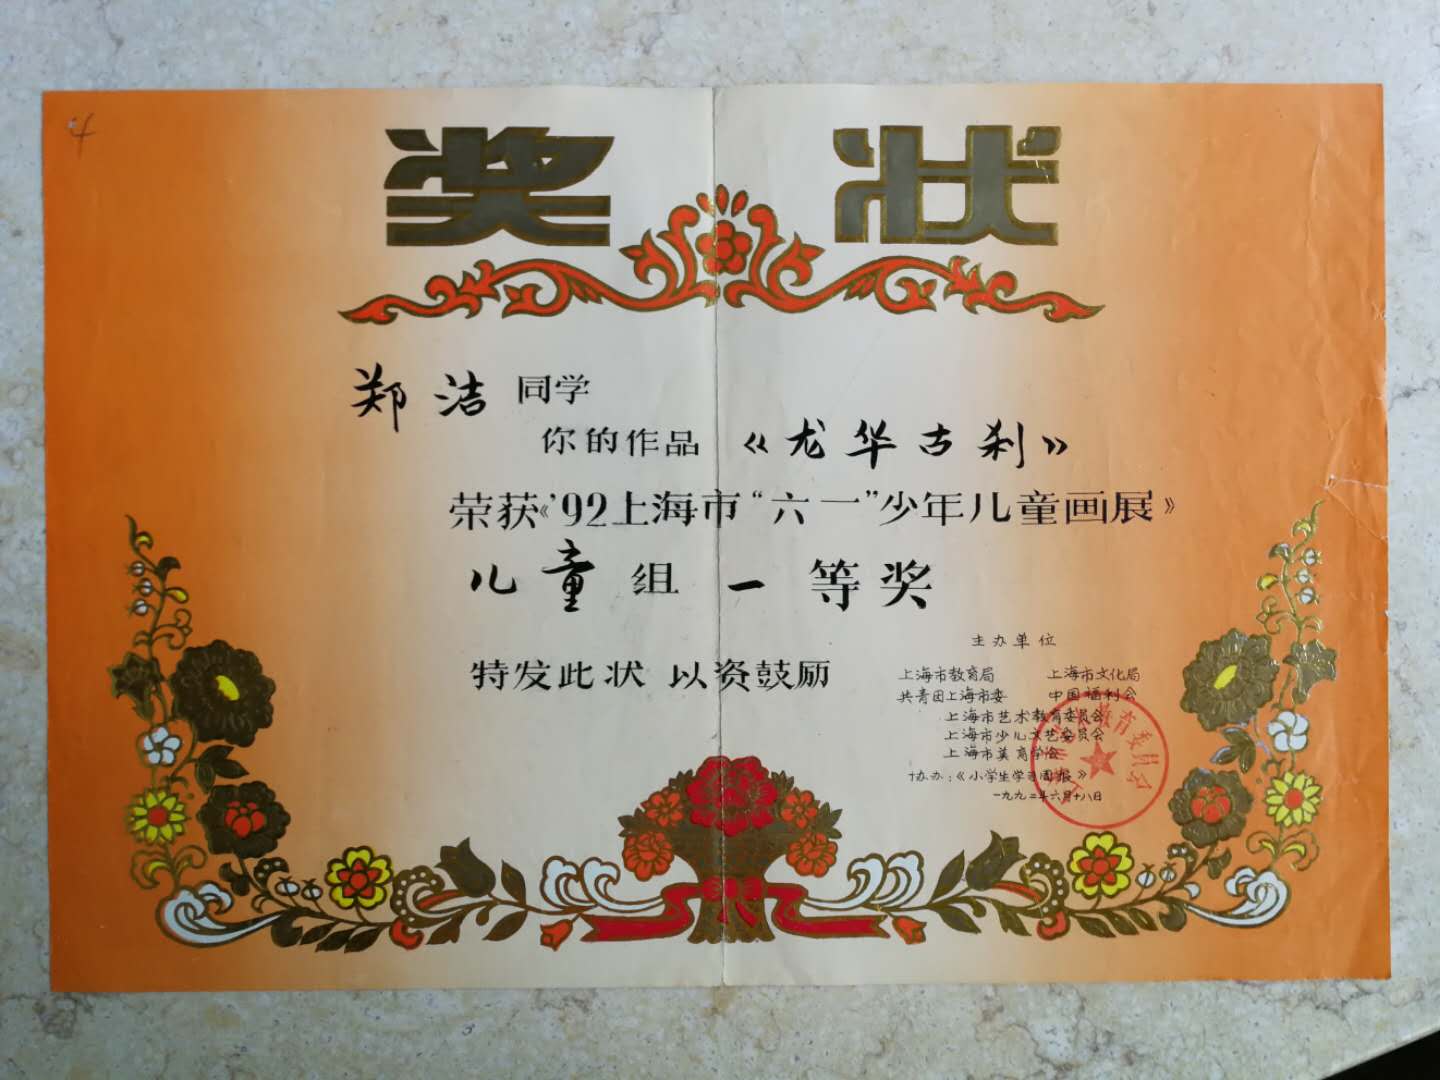 4
奖 状
郑洁 同学
你的作品 《龙华古刹》
荣获《’92上海市“六一”少年儿童画展》
儿童 组 一 等奖
特发此状 以资鼓励
主办单位
上海市教育局 上海市文化局
共青团上海市委 中国福利会
上海市艺术教育委员会
上海市少儿文艺委员会
上海市美育学会
协办:《小学生学习周报》
一九九二年六月十八日